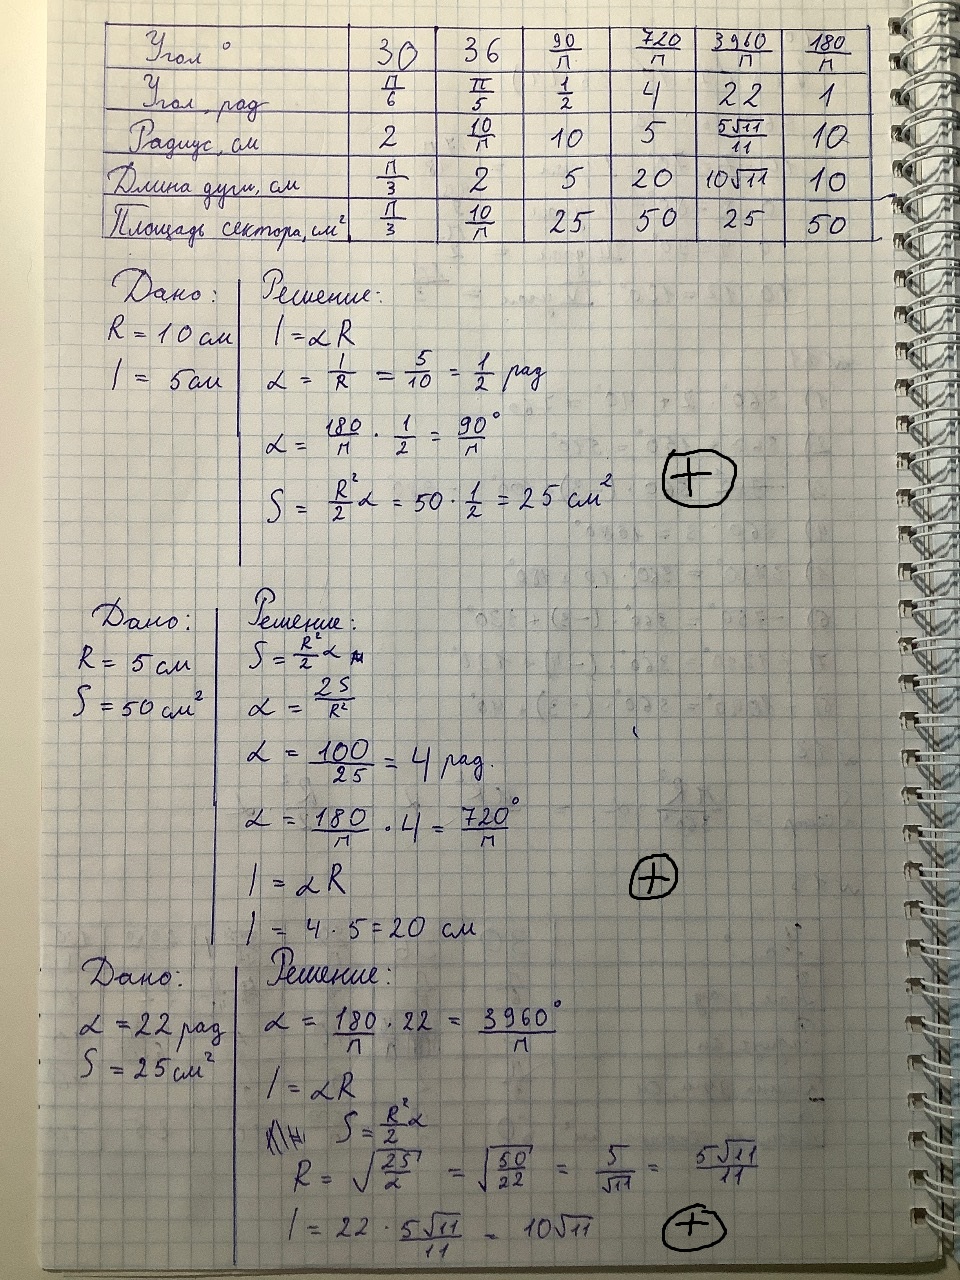 Угол ° 30 36 90/π 720/π 3960/π 180/π
Угол, рад π/6 π/5 1/2 4 22 1
Радиус, см 2 10/π 10 5 5√11/11 10
Длина дуги, см π/3 2 5 20 10√11 10
Площадь сектора, см² π/3 10/π 25 50 25 50
Дано: Решение:
R = 10 см l = αR
l = 5 см α = l/R = 5/10 = 1/2 рад
α = 180/π · 1/2 = 90°/π
S = R²/2 α = 50 · 1/2 = 25 см²
+
Дано: Решение:
R = 5 см S = R²/2 α
S = 50 см² α = 2S/R²
α = 100/25 = 4 рад.
α = 180/π · 4 = 720°/π
l = αR
+
l = 4 · 5 = 20 см
Дано: Решение:
α = 22 рад α = 180/π · 22 = 3960°/π
S = 25 см² l = αR
S = R²/2 α
R = √(2S/α) = √(50/22) = 5/√11 = 5√11/11
l = 22 · 5√11/11 = 10√11
+